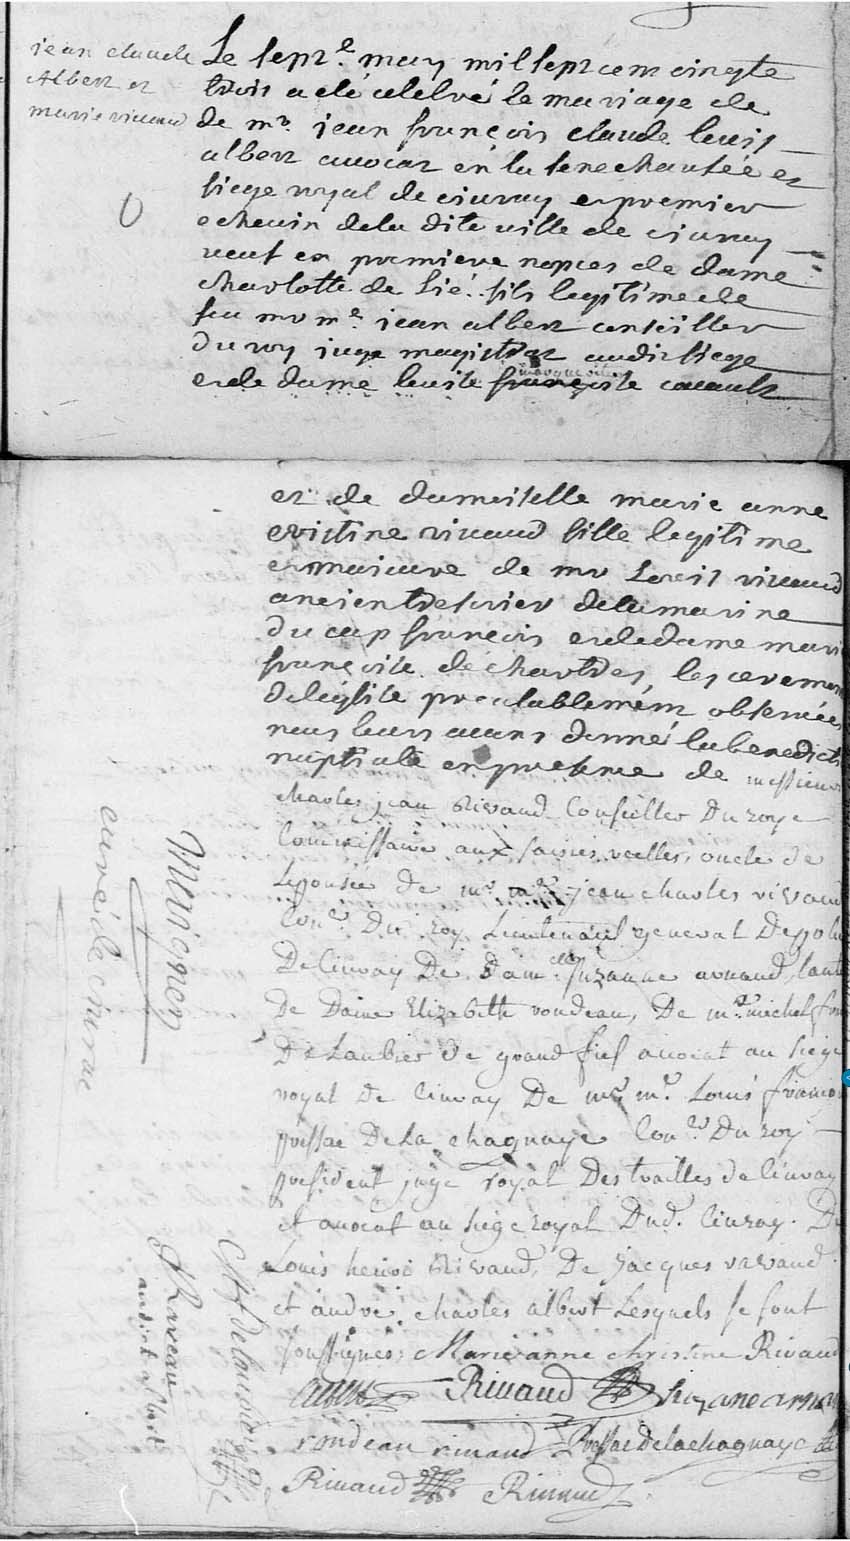 jean claude
Albert et
marie rivaud
Le sept.e may mil sept cens cinqte
trois a eté celebré le mariage de
de mr. jean françois claude louis
albert avocat en la senechausée et
siege royal de civray et premier
echevin de la dite ville de civray
veuf en premiere nopces de dame
charlotte de Lié. fils legitime de
feu mr me. jean albert conseiller
du roy juge magistrat audit siege
et de dame louise françoise
et de damoiselle marie anne
cristine rivaud fille legitime
et majeure de mr Louis rivaud
ancien tresorier de la marine
du cap françois et de dame marie
françoise de chartres, les ceremon
de leglise prealablement observées
nous leurs avons donné la benedicti
nuptiale en presence de messieurs
charles jean Rivaud Conseiller Du roy
Commissaire aux saisies reelles, oncle de
Lepousée de mr. jean charles rivaud
Con.er Du roy Lieutenant general De poli
De Civray De dam.elle Suzanne arnaud, tante
De Dame Elizabeth rondeau, De mr. michel fran
De Laubier de grand fief avocat au siege
royal de Civray De mr mr. Louis françois
poissac De La chagnaye Con.er Du roy
president juge royal Des traittes de Civray
et avocat au siege royal Dud. Civray. De
Louis henri Rivaud, De Jacques rivaud
et andré charles albert Lesquels se sont
soussignés; Marie anne christine Rivaud
albert Rivaud Suzane arnau
rondeau rivaud Poissac De la chagnaye
Rivaud Rivaud
curé de civrai